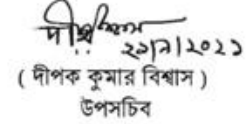 ২১/৭/২০২১
( দীপক কুমার বিশ্বাস )
উপসচিব